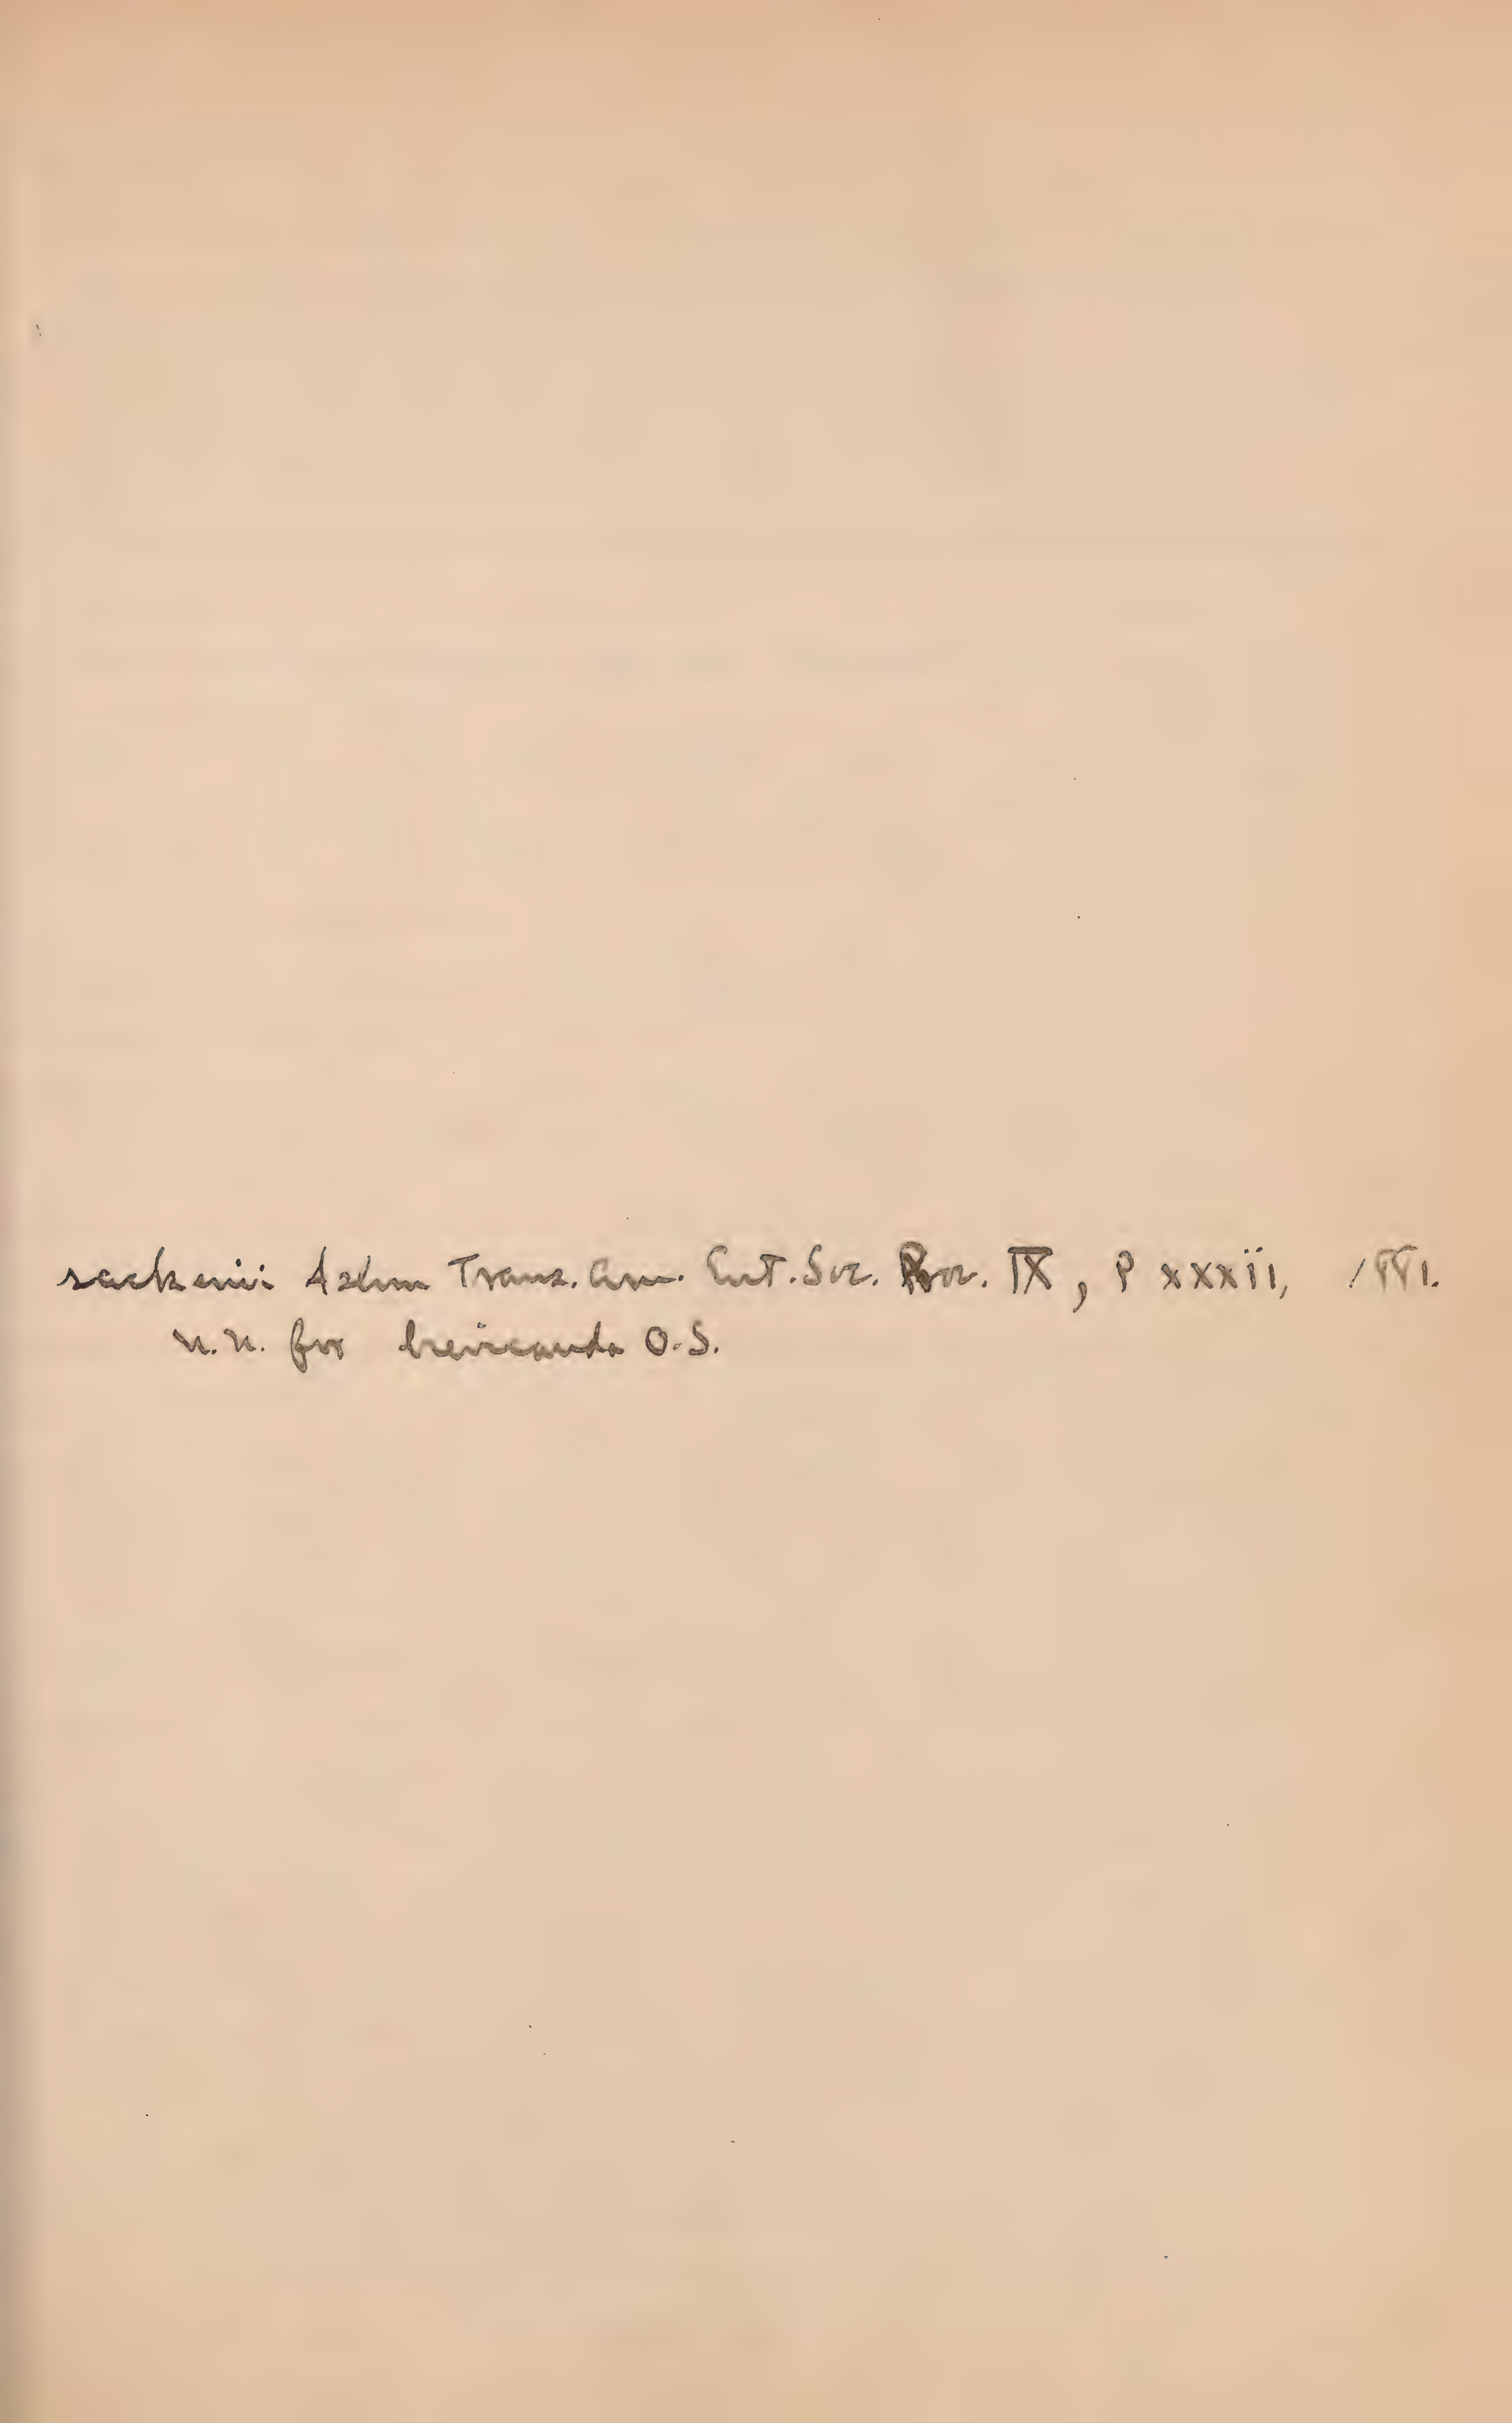 sackenii Ashm Trans. Am. Ent. Soc. Proc. IX, p xxxii, 1881.
n. n. for brevicauda O.S.